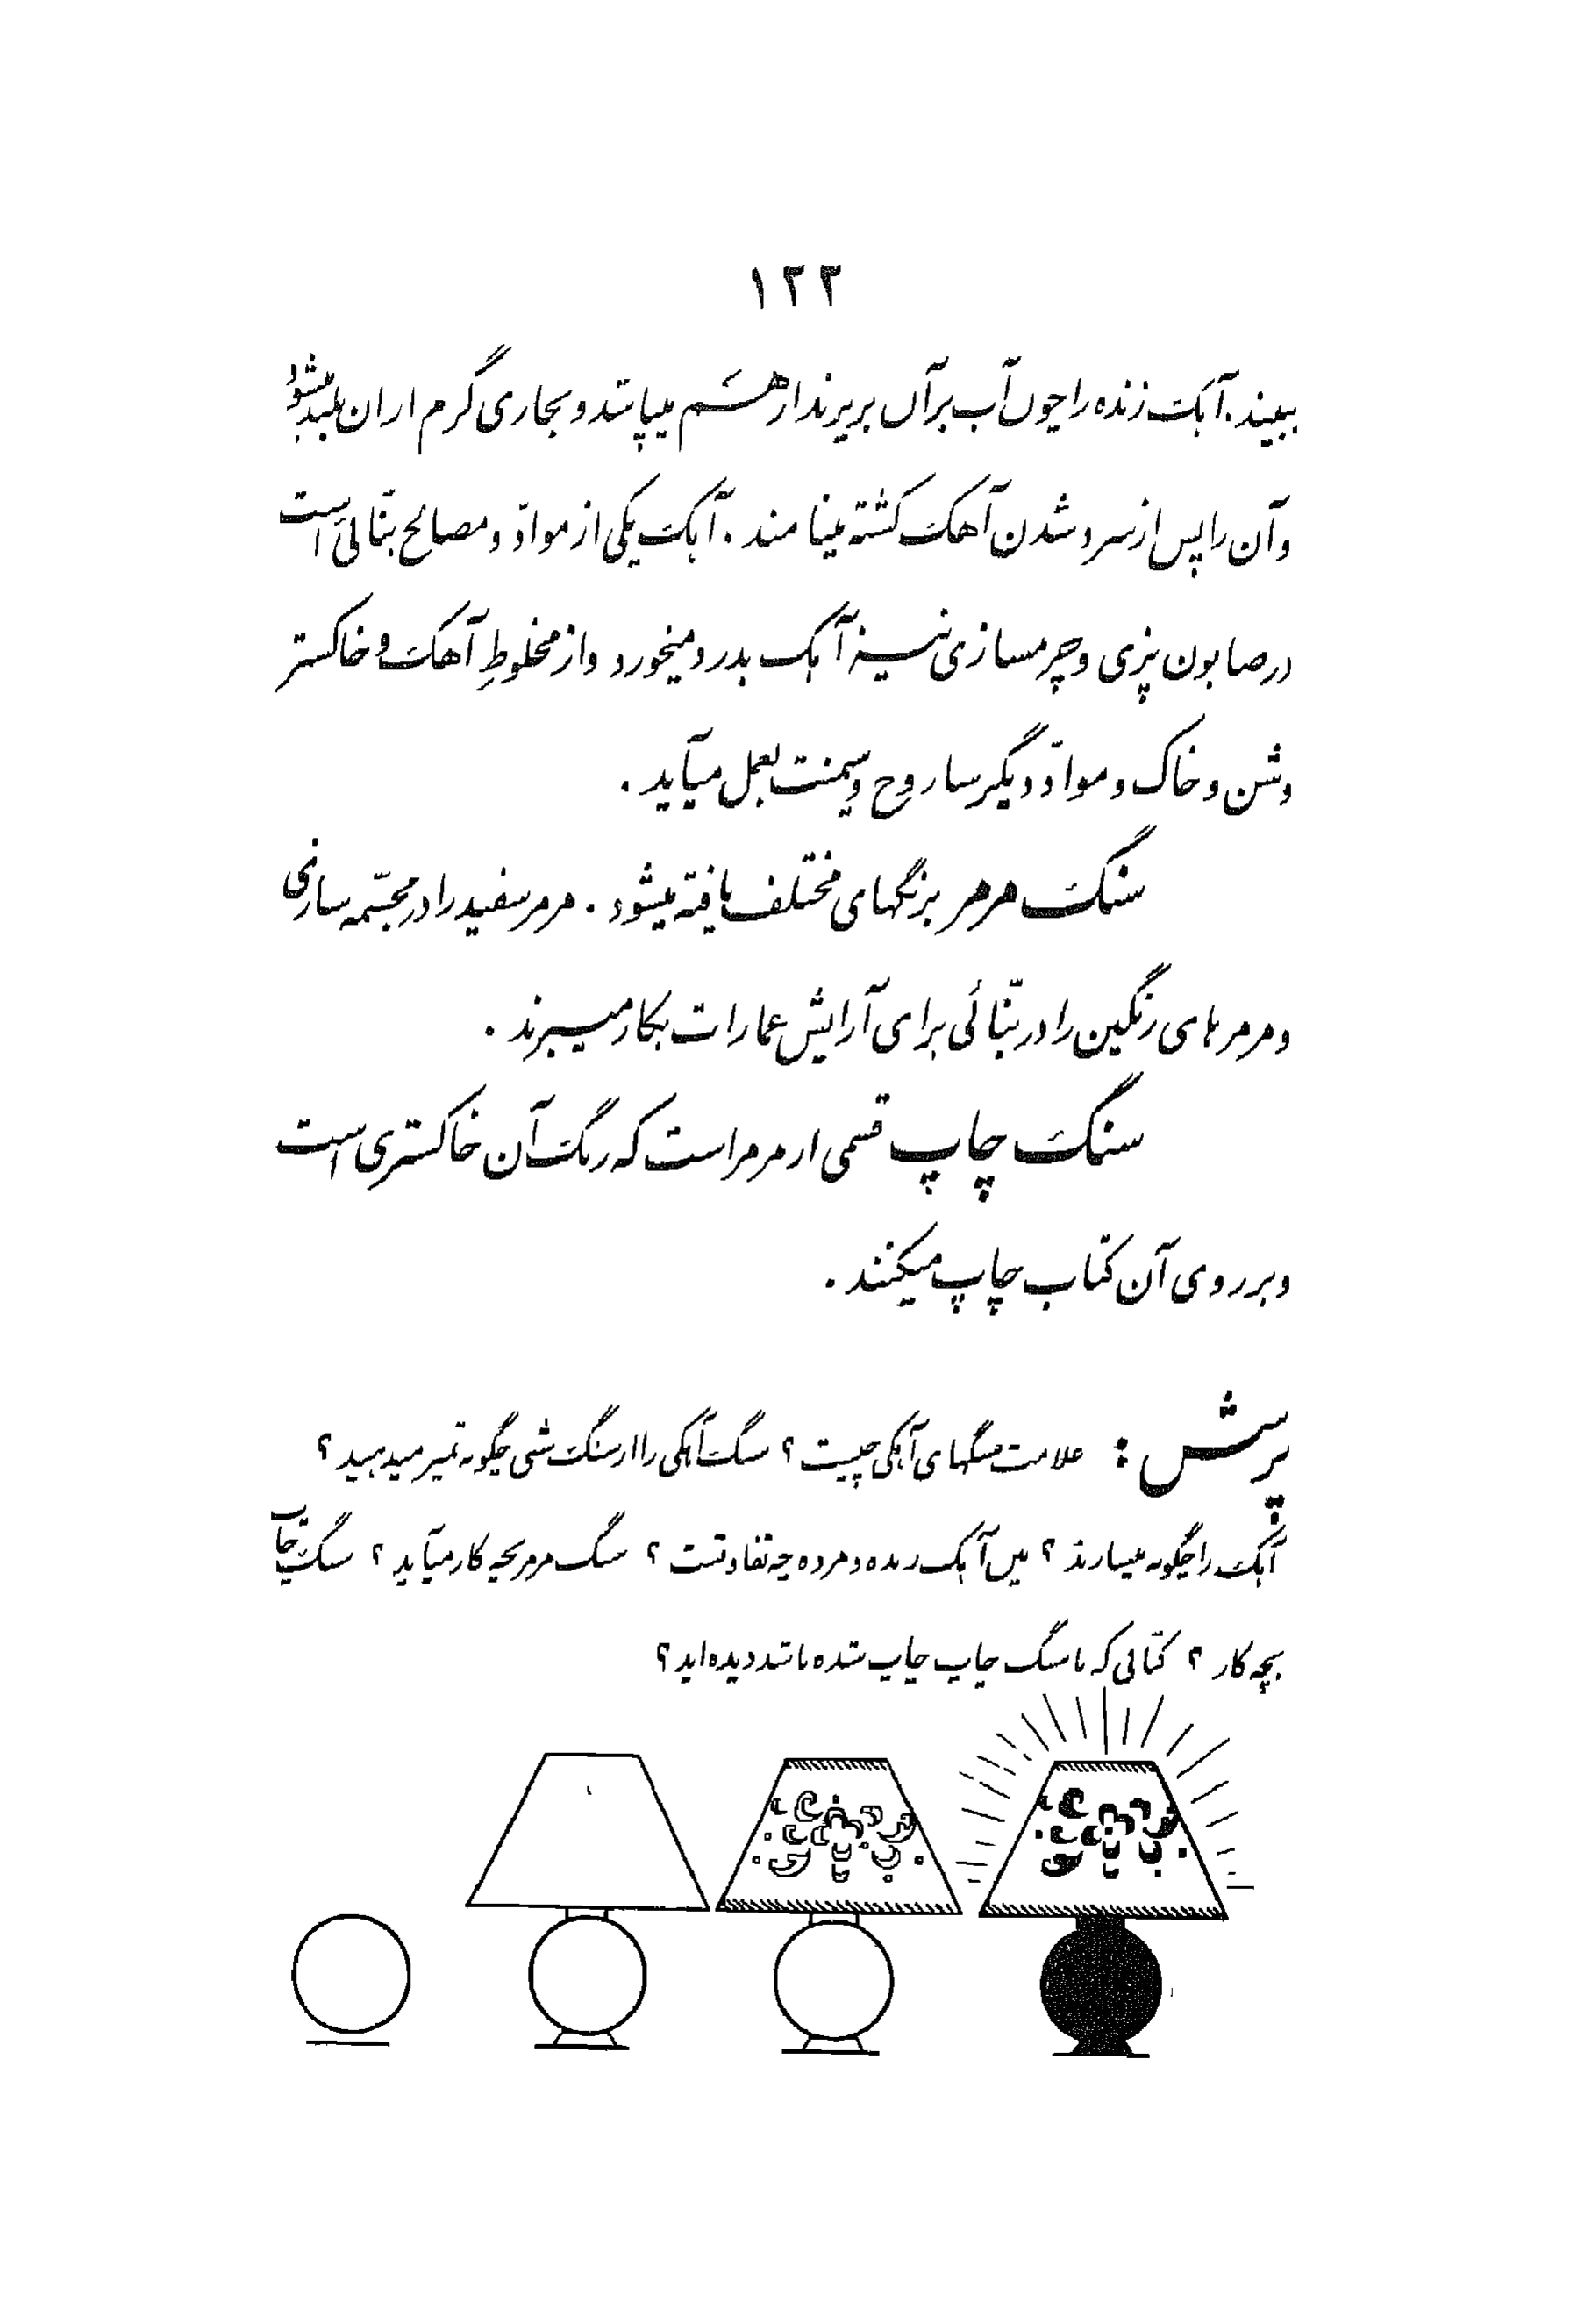 ۱۲۲
ببیند. آهک زنده را چون آب بر آن بریزند از هم میپاشد و بخاری گرم از آن بلند میشود
و آن را پس از سرد شدن آهک کشته مینامند. آهک یکی از موادّ و مصالح بنّائی است
در صابون پزی و چرمسازی نیز آهک بدرد میخورد و از مخلوطِ آهک و خاکستر
و شن و خاک و موادّ دیگر ساروج و سیمنت بعمل میآید.
سنگ مرمر برنگهای مختلف یافته میشود. مرمر سفید را در مجسّمه سازی
و مرمرهای رنگین را در بنّائی برای آرایش عمارات بکار میبرند.
سنگ چاپ قسمی از مرمر است که رنگ آن خاکستری است
و بر روی آن کتاب چاپ میکنند.
پرسش: علامت سنگهای آهکی چیست؟ سنگ آهکی را از سنگ شنی چگونه تمیز میدهید؟
آهک را چگونه میسازند؟ بین آهک زنده و مرده چه تفاوتست؟ سنگ مرمر بچه کار میآید؟ سنگ چاپ
بچه کار؟ کتابی که با سنگ چاپ چاپ شده باشد دیده‌اید؟